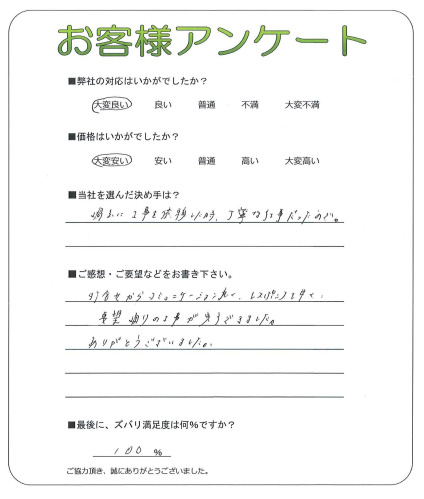 お客様アンケート
■弊社の対応はいかがでしたか？
大変良い 良い 普通 不満 大変不満
■価格はいかがでしたか？
大変安い 安い 普通 高い 大変高い
■当社を選んだ決め手は？
工事を依頼したから、丁寧な仕事だったので。
■ご感想・ご要望などをお書き下さい。
打合せからコミュニケーション レスポンスも早く、
要望通りの工事ができました。
ありがとうございました。
■最後に、ズバリ満足度は何％ですか？
100 ％
ご協力頂き、誠にありがとうございました。